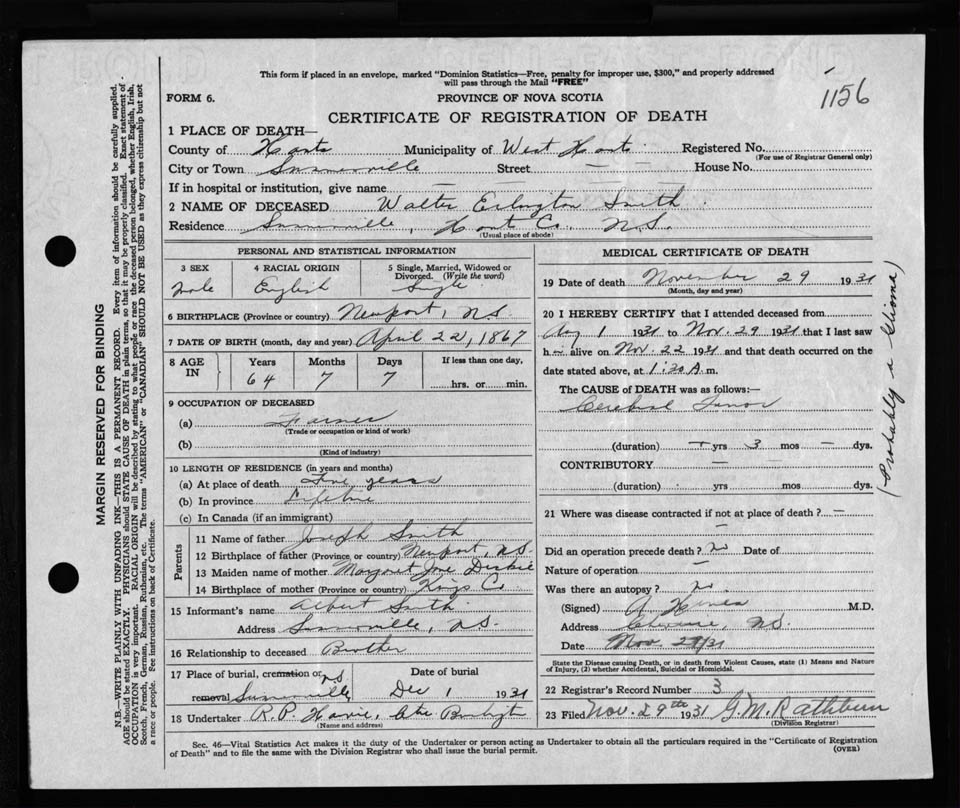 This form if placed in an envelope, marked "Dominion Statistics—Free, penalty for improper use, $300," and properly addressed
will pass through the Mail "FREE"
1156
FORM 6.
PROVINCE OF NOVA SCOTIA
CERTIFICATE OF REGISTRATION OF DEATH
1 PLACE OF DEATH—
County of Hants Municipality of West Hants Registered No.
(For use of Registrar General only)
City or Town Summerville Street — — House No.
If in hospital or institution, give name — — —
2 NAME OF DECEASED Walter Smith
Residence Summerville, Hants Co. N.S.
(Usual place of abode)
PERSONAL AND STATISTICAL INFORMATION
3 SEX 4 RACIAL ORIGIN 5 Single, Married, Widowed or Divorced. (Write the word)
Male English Single
6 BIRTHPLACE (Province or country) Newport, N.S.
7 DATE OF BIRTH (month, day and year) April 22, 1867
8 AGE IN Years Months Days If less than one day,
64 7 7 hrs. or min.
9 OCCUPATION OF DECEASED
(a) Farmer
(Trade or occupation or kind of work)
(b)
(Kind of industry)
10 LENGTH OF RESIDENCE (in years and months)
(a) At place of death years
(b) In province Lifetime
(c) In Canada (if an immigrant)
Parents
11 Name of father Joseph Smith
12 Birthplace of father (Province or country) Newport, N.S.
13 Maiden name of mother Margaret Jane
14 Birthplace of mother (Province or country) Kings Co
15 Informant's name Albert Smith
Address Summerville, N.S.
16 Relationship to deceased Brother
17 Place of burial, cremation or removal Summerville N.S. Date of burial Dec 1 1931
18 Undertaker R.P.
(Name and address)
MEDICAL CERTIFICATE OF DEATH
19 Date of death November 29 1931
(Month, day and year)
20 I HEREBY CERTIFY that I attended deceased from
Aug 1 1931 to Nov. 29 1931 that I last saw
h— alive on Nov. 22 1931 and that death occurred on the
date stated above, at 1:30 A.m.
The CAUSE of DEATH was as follows:—
Cerebral Tumor
(Probably a Glioma)
(duration) — yrs 3 mos — dys.
CONTRIBUTORY —
(duration) yrs — mos dys.
21 Where was disease contracted if not at place of death? —
—
Did an operation precede death? no Date of
Nature of operation —
Was there an autopsy? no
(Signed) M.D.
Address N.S.
Date Nov. 29/31
State the Disease causing Death, or in death from Violent Causes, state (1) Means and Nature
of Injury, (2) whether Accidental, Suicidal or Homicidal.
22 Registrar's Record Number 3
23 Filed Nov. 29th 1931 G.M. Rathbun
(Division Registrar)
Sec. 46—Vital Statistics Act makes it the duty of the Undertaker or person acting as Undertaker to obtain all the particulars required in the "Certificate of Registration
of Death" and to file the same with the Division Registrar who shall issue the burial permit.
(OVER)
MARGIN RESERVED FOR BINDING
N.B.—WRITE PLAINLY WITH UNFADING INK—THIS IS A PERMANENT RECORD. Every item of information should be carefully supplied.
AGE should be stated EXACTLY. PHYSICIANS should STATE CAUSE OF DEATH in plain terms, so that it may be properly classified. Exact statement of
OCCUPATION is very important. RACIAL ORIGIN will be described by stating to what people or race the deceased person belonged, whether English, Irish,
Scotch, French, German, Russian, Ruthenian, etc. The terms "AMERICAN" or "CANADIAN" SHOULD NOT BE USED as they express citizenship but not
a race or people. See instructions on back of Certificate.